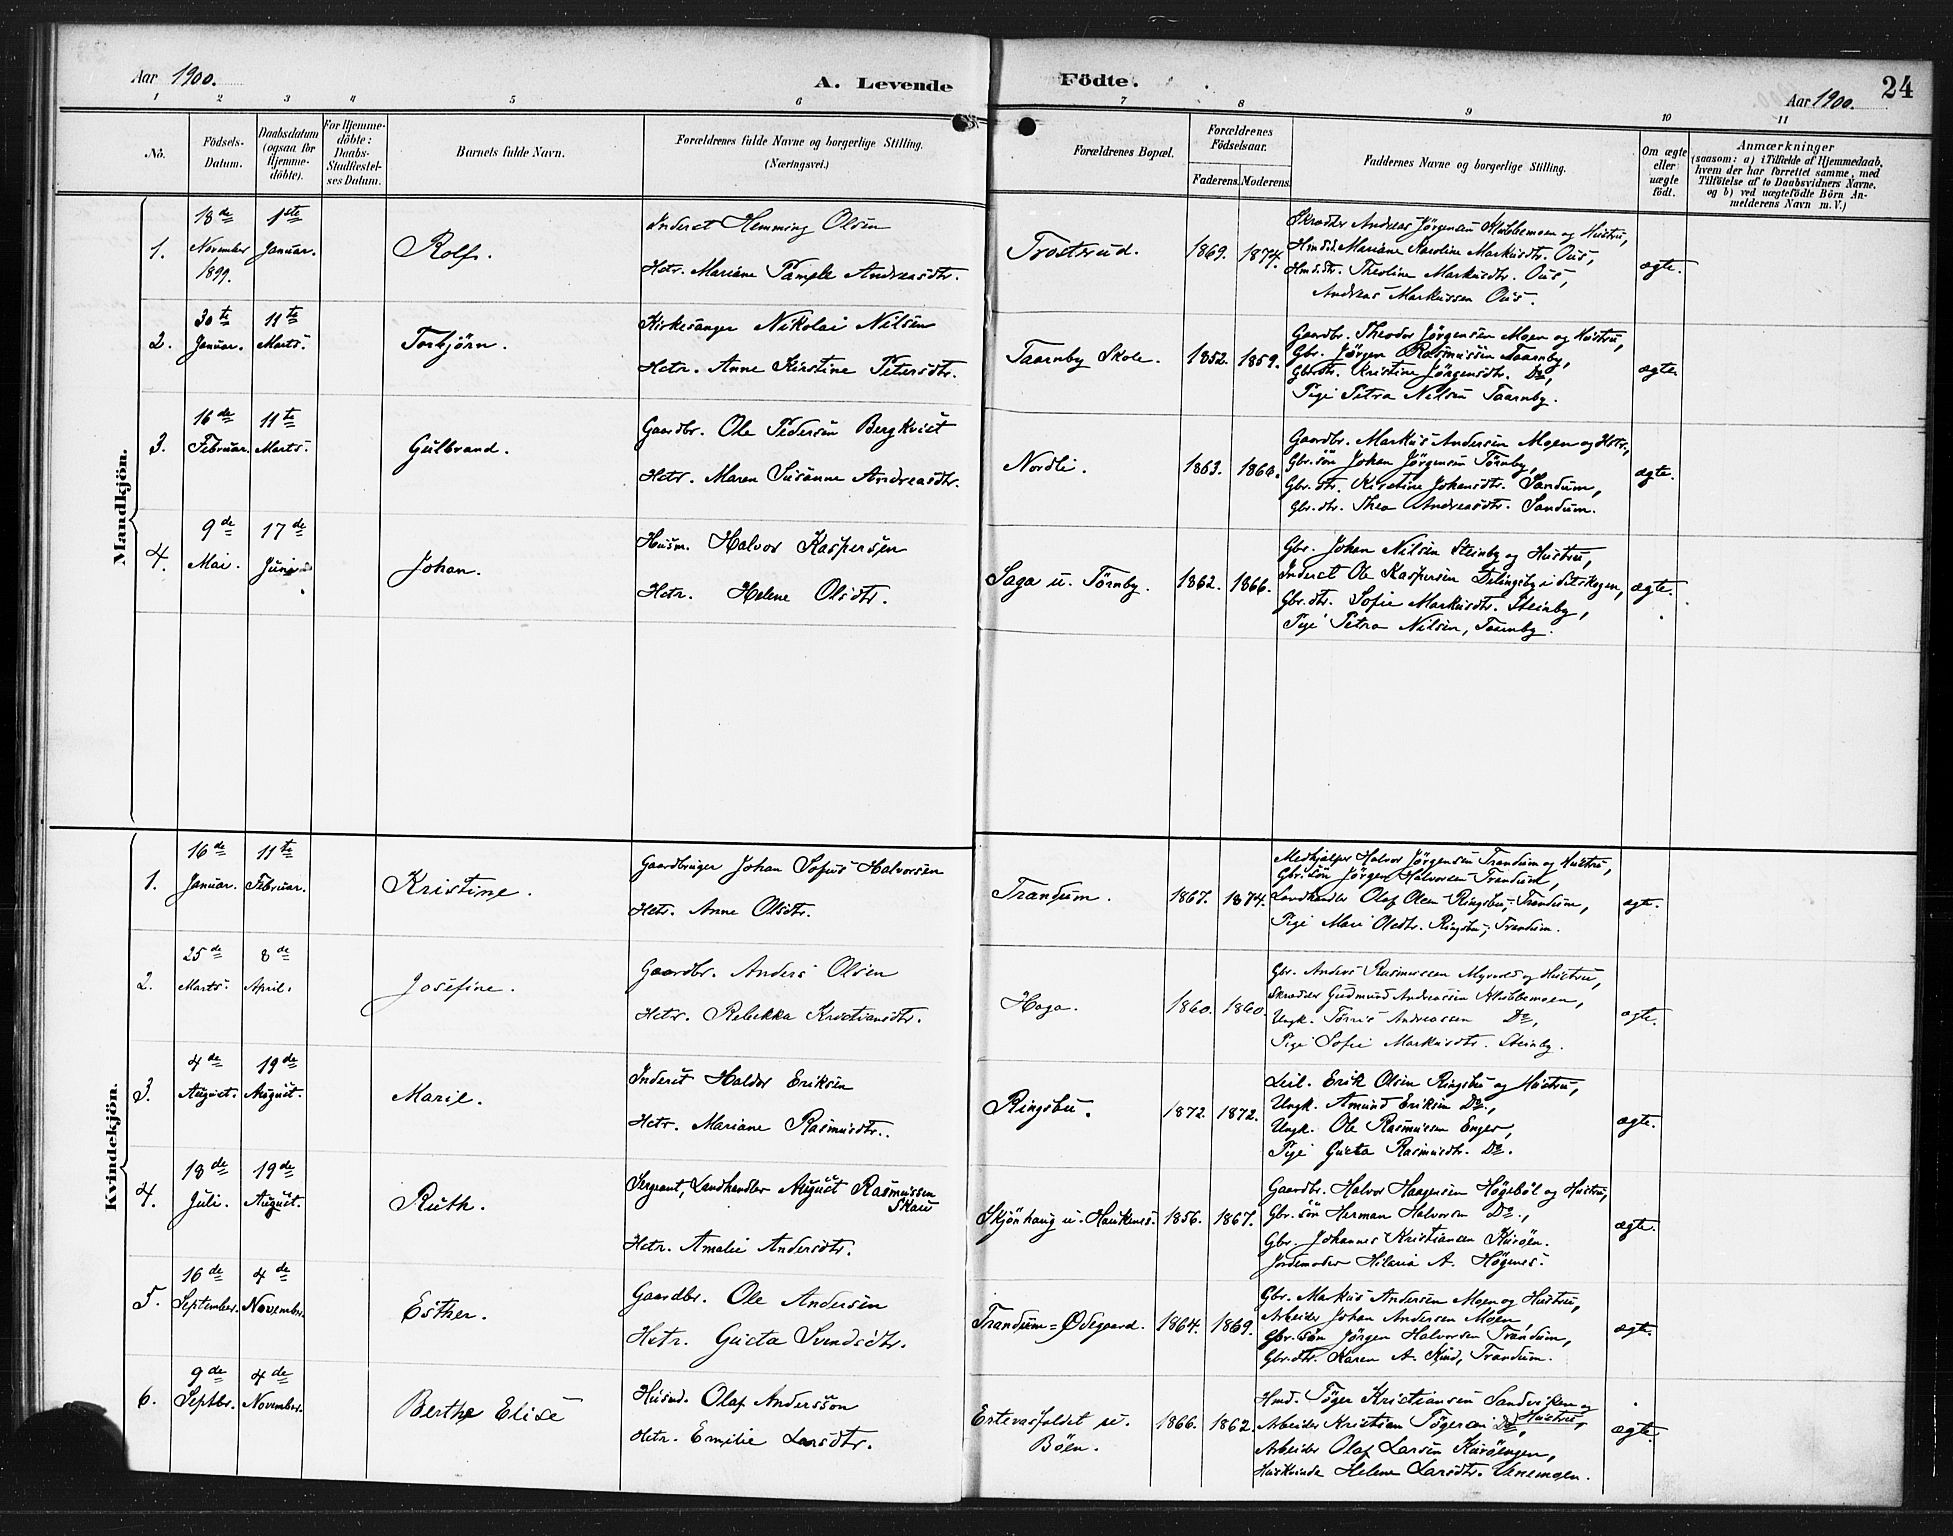 Aar 1900.
A. Levende
Födte.
24
Aar 1900.
1 2 3 4 5 6 7 8 9 10 11
No.
Födsels-Datum.
Daabsdatum (ogsaa for Hjemme-döbte).
For Hjemme-döbte: Daabs-Stadfæstel-ses Datum.
Barnets fulde Navn.
Forældrenes fulde Navne og borgerlige Stilling.
(Næringsvei.)
Forældrenes Bopæl.
Forældrenes Födselsaar.
Faderens. Moderens.
Faddernes Navne og borgerlige Stilling.
Om ægte eller uægte födt.
Anmærkninger
(saasom: a) i Tilfælde af Hjemmedaab, hvem der har forrettet samme, med Tilföielse af to Daabsvidners Navne, og b) ved uægtefödte Börn An-melderens Navn m. V.)
Mandkjön.
1.
18de November 1899.
1ste Januar.
Rolf.
Inderst Hemming Olsen
Hstr. Mariane Andreasdtr.
Trostrud.
1869. 1874.
Skrædder Andreas Jörgensen Klubbemoen og Hustru,
Hmdsd. Mariane Karoline Markusdtr. Ous,
Hmdsdtr. Theoline Markusdtr. Ous,
Andreas Markussen Ous.
ægte.
2.
30te Januar.
11te Marts.
Torbjörn.
Kirkesanger Nikolai Nilsen
Hstr. Anne Kirstine Petersdtr.
Taarnby Skole.
1852. 1859.
Gaardbr. Theodor Jörgensen Moen og Hustru,
Gbr. Jörgen Rasmussen Taarnby,
Gbrdtr. Kristine Jörgensdtr. Do,
Pige Petra Nilsen Taarnby.
ægte.
3.
16de Februar.
11te Marts.
Gulbrand.
Gaardbr. Ole Pedersen Bergkvist
Hstr. Maren Susanne Andreasdtr.
Nordli.
1863. 1866.
Gaardbr. Markus Andersen Moen og Hstr.,
Gbr.sön Johan Jörgensen Törnby,
Gbr.dtr. Kirstine Johansdtr. Sandum,
Gbr.dtr. Thea Andreasdtr. Sandum.
ægte.
4.
9de Mai.
17de Juni
Johan.
Husm. Halvor Kaspersen
Hstr. Helene Olsdtr.
Saga u. Törnby.
1862. 1866.
Gbr. Johan Nilsen Steinby og Hustru,
Inderst Ole Kaspersen i Setskogen,
Gbr.dtr. Sofie Markusdtr. Steinby,
Pige Petra Nilsen, Taarnby.
ægte.
Kvindekjön.
1.
16de Januar.
11te Februar.
Kristine.
Gaardbruger Johan Sofus Halvorsen
Hstr. Anne Olsdtr.
Trandum.
1867. 1874.
Medhjælper Halvor Jörgensen Trandum og Hustru,
Gbr.sön Jörgen Halvorsen Trandum,
Landhandler Olaf Olsen Ringsbu, Trandum,
Pige Mari Olsdtr. Ringsbu, Trandum.
ægt.
2.
25de Marts.
8de April.
Josefine.
Gaardbr. Anders Olsen
Hstr. Rebekka Kristiansdtr.
Haga.
1860. 1860.
Gbr. Anders Rasmussen Myrvold og Hustru,
Skrædder Gudmund Andreassen Klubbemoen,
Ungk. Andreassen Do,
Pige Sofie Markusdtr. Steinby.
ægte.
3.
4de August.
19de August.
Marie.
Inderst Haldor Eriksen
Hstr. Mariane Rasmusdtr.
Ringsbu.
1872 1872.
Leil. Erik Olsen Ringsbu og Hustru,
Ungk. Amund Eriksen Do,
Ungk. Ole Rasmussen Enger,
Pige Gusta Rasmusdtr. Do.
ægte.
4.
18de Juli.
19de August.
Ruth.
Sergeant, Landhandler August Rasmussen Skau
Hstr. Amalie Andersdtr.
Skjönhaug u. Haukenes.
1856. 1867.
Gaardbr. Halvor Haagensen Högeböl og Hustru,
Gbr.sön Herman Halvorsen Do,
Gbr. Johannes Kristiansen Kuröen.
Jordemoder Hilaria A. Högnes.
ægte.
5.
16de September.
4de November.
Esther.
Gaardbr. Ole Andersen
Hstr. Gusta Svendsdtr.
Trandum=Ödegaard.
1864. 1869.
Gbr. Markus Andersen Moen og Hustru,
Arbeider Johan Andersen Moen,
Gbr.sön Jörgen Halvorsen Trandum,
Gbr.dtr. Karen A. Trandum.
ægte.
6.
9de Septbr.
4de November.
Berthe Elise
Husmd. Olaf Andersson
Hstr. Emilie Larsdtr.
u. Böen.
1866. 1862.
Hmd. Töger Kristiansen Sandviken og Hustru,
Arbeider Kristian Tögersen Do,
Arbeider Olaf Larsen Kuröengen,
Huskvinde Helene Larsdtr. Vænemoen.
ægte.